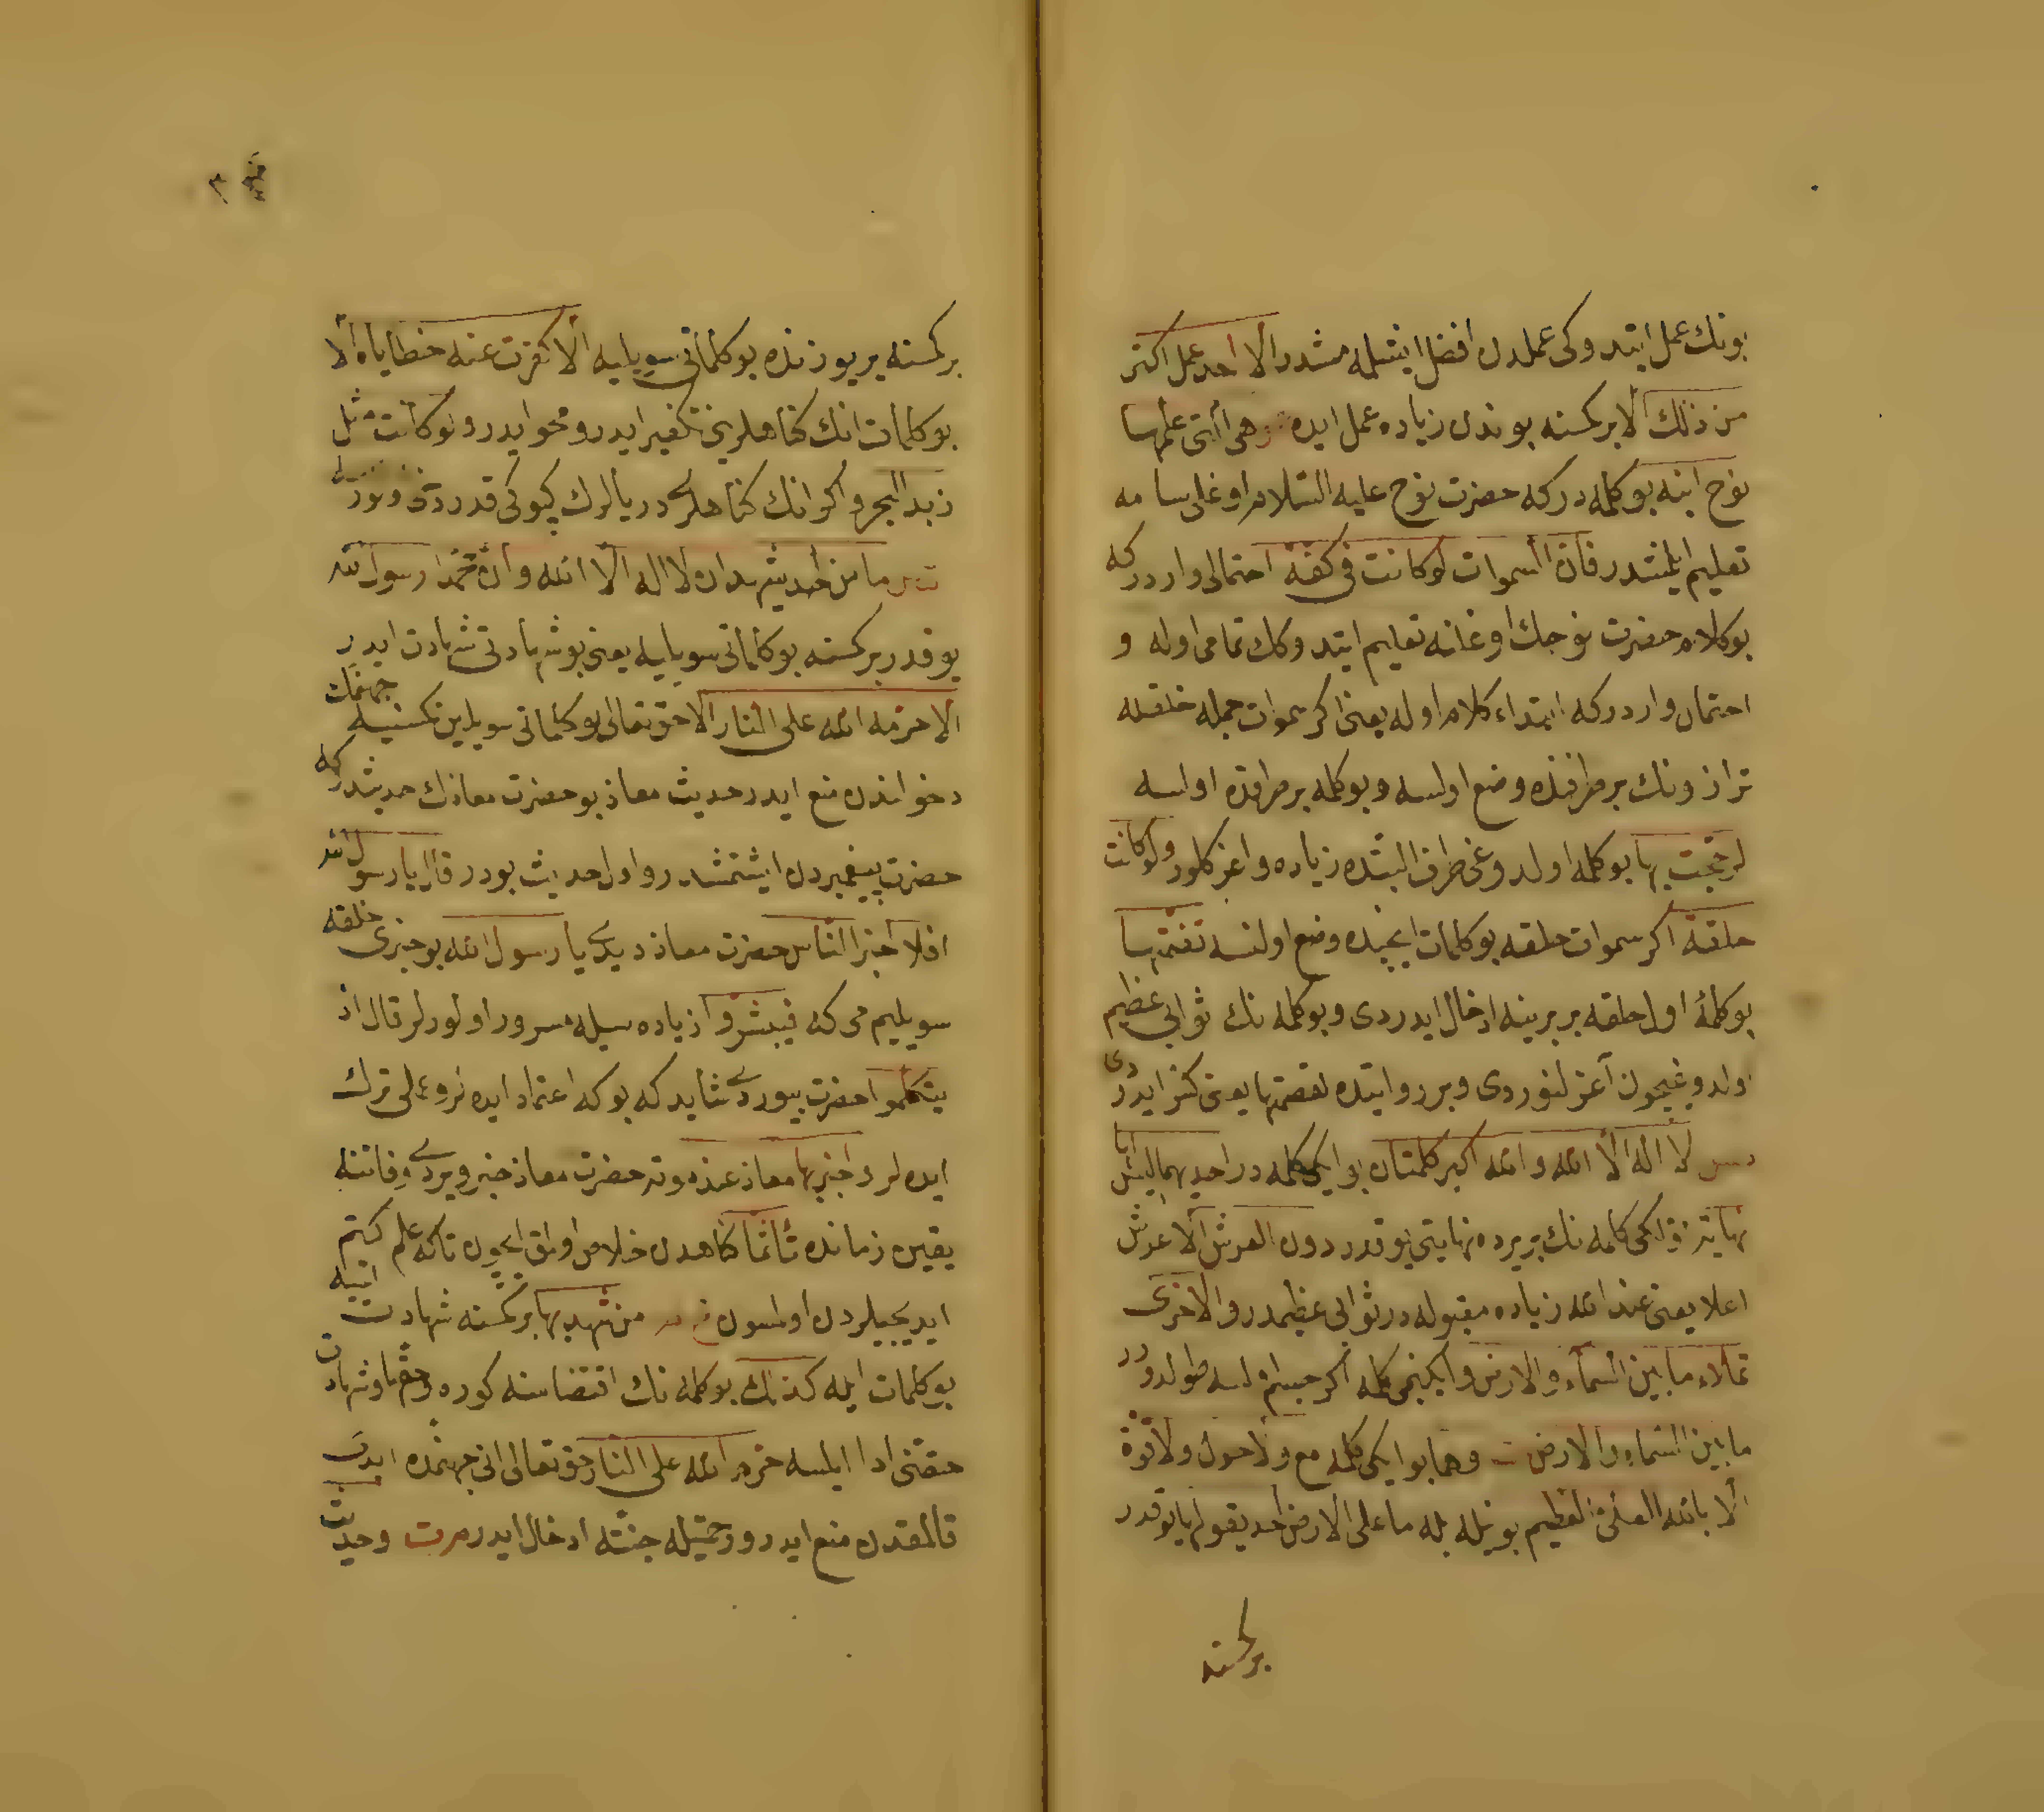 بونك عمل ايتدوكی عملدن افضل ايشلمه مشدر الا احد عمل اكثر
من ذلك الا بر كمسنه بوندن زياده عمل ايده وهی التی علمها
نوح ابنه بو كلمه در كه حضرت نوح عليه السلام اوغلی سامه
تعليم ايلمشدر فان السموات لو كانت فی كفة احتمالی واردر كه
بو كلام حضرت نوحك اوغلنه تعليم ايتدوكك تمامی اوله و
احتمال واردر كه ابتداء كلام اوله يعنی اكر سموات جمله خلقيله
ترازونك بر طرفنده وضع اولسه و بو كلمه بر طرفده اولسه
لرجحت بها بو كلمه اولدوغی طرف البته زياده و اغر كلور ولو كانت
حلقة اكر سموات حلقه بو كلمات ايچنده وضع اولنسه تضمنتها
بو كلمۀ اول حلقه بربرينه ادخال ايدردی و بو كلمه نك ثوابی عظيم
اولدوغيچون آغر لنوردی و بر روايتده لقصمتها يعنی كسر ايدردی
لا اله الا الله والله اكبر كلمتان بو ايكی كلمه در احديهما ليس لها
نهاية اولكی كلمه نك بر يرده نهايتی يوقدر دون العرش الا عرش
اعلا يعنی عند الله زياده مقبوله در ثوابی عظيمدر والاخری
تملاء ما بين السماء والارض و ايكنجی كلمه اكر جسم اولسه طولدورر
ما بين السماء والارض وهما بو ايكی كلمه مع ولا حول ولا قوة
الا بالله العلی العظيم بونيله بله ما علی الارض احد يقولها يوقدر
بر كمسنه
٣
بر كمسنه ير يوزنده بو كلماتی سويليه الا كفرت عنه خطاياه الا
بو كلمات انك كناهلرينی تكفير ايدر و محو ايدر ولو كانت مثل
زبد البحر و اكر انك كناهلری دريالرك كپوكی قدر
ما من احد يشهد ان لا اله الا الله وان محمدا رسول الله
يوقدر بر كمسنه بو كلماتی سويليه يعنی بو شهادتی شهادت ايدر
الا حرمه الله علی النار الا حق تعالی بو كلماتی سويلين كمسنيه جهنمك
دخولندن منع ايدر حديث معاذ بو حضرت معاذك حديثدر كه
حضرت پيغمبردن ايشتمشدر و اول حديث بودر قال يا رسول الله
افلا اخبر الناس حضرت معاذ ديدی يا رسول الله بو خبری خلقه
سويليم می كه فيبشروا زياده سيله مسرور اولورلر قال اذ
يتكلموا حضرت بيوردی شايد كه بوكه اعتماد ايده لر و عملی ترك
ايده لر و اخبر بها معاذ عند موته حضرت معاذ خبر ويردی وفاتنه
يقين زمانده تأثما كناهدن خلاص اولمق ايچون تا كه علم كتم
ايديجيلردن اولمسون من شهد بها بر كمسنه شهادت ايتيه
بو كلمات ايله كذلك بو كلمه نك اقتضاسنه كوره وحقها و شهادت
حقنی ادا ايلسه حرم الله علی النار حق تعالی انی جهنمده ابدی
قالمقدن منع ايدر و رحمتيله جنته ادخال ايدر م ت وحديث